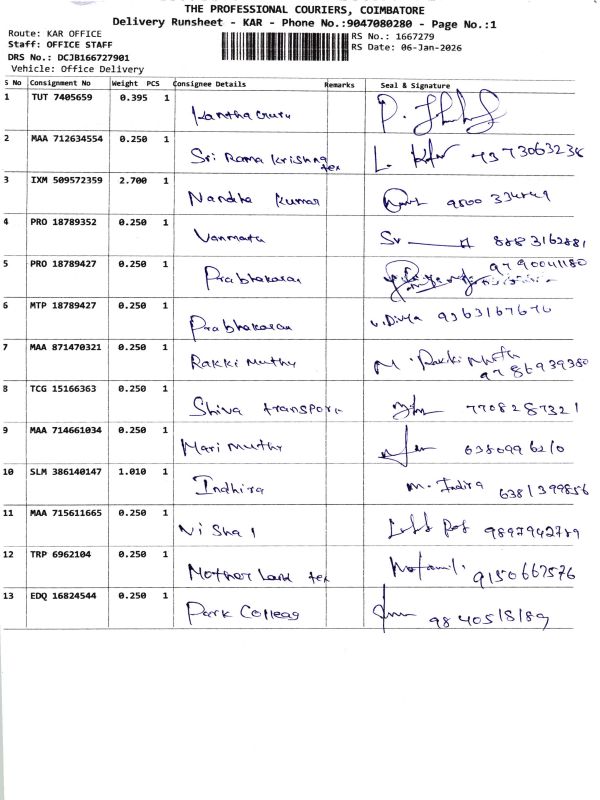 THE PROFESSIONAL COURIERS, COIMBATORE
Delivery Runsheet - KAR - Phone No.:9047080280 - Page No.:1
Route: KAR OFFICE
RS No.: 1667279
Staff: OFFICE STAFF
RS Date: 06-Jan-2026
DRS No.: DCJB166727901
Vehicle: Office Delivery
S No Consignment No Weight PCS Consignee Details Remarks Seal & Signature
1 TUT 7405659 0.395 1 Kantha Guru
2 MAA 712634554 0.250 1 Sri Rama Krishna tex
3 IXM 509572359 2.700 1 Nandha Kumar
4 PRO 18789352 0.250 1 8883162881
5 PRO 18789427 0.250 1 Prabhakaran 9790041180
6 MTP 18789427 0.250 1 Prabhakaran v. Divya 9363167676
7 MAA 871470321 0.250 1 Rakki Muthu M. Rakki Muthu
9786939380
8 TCG 15166363 0.250 1 Shiva transport 7708287321
9 MAA 714661034 0.250 1 Mari Muthu 6380996210
10 SLM 386140147 1.010 1 Indhira M. Indira 6381399856
11 MAA 715611665 0.250 1 Vishal 9897942789
12 TRP 6962104 0.250 1 Mother Land tex 9150667576
13 EDQ 16824544 0.250 1 Park Colleag 9840518189